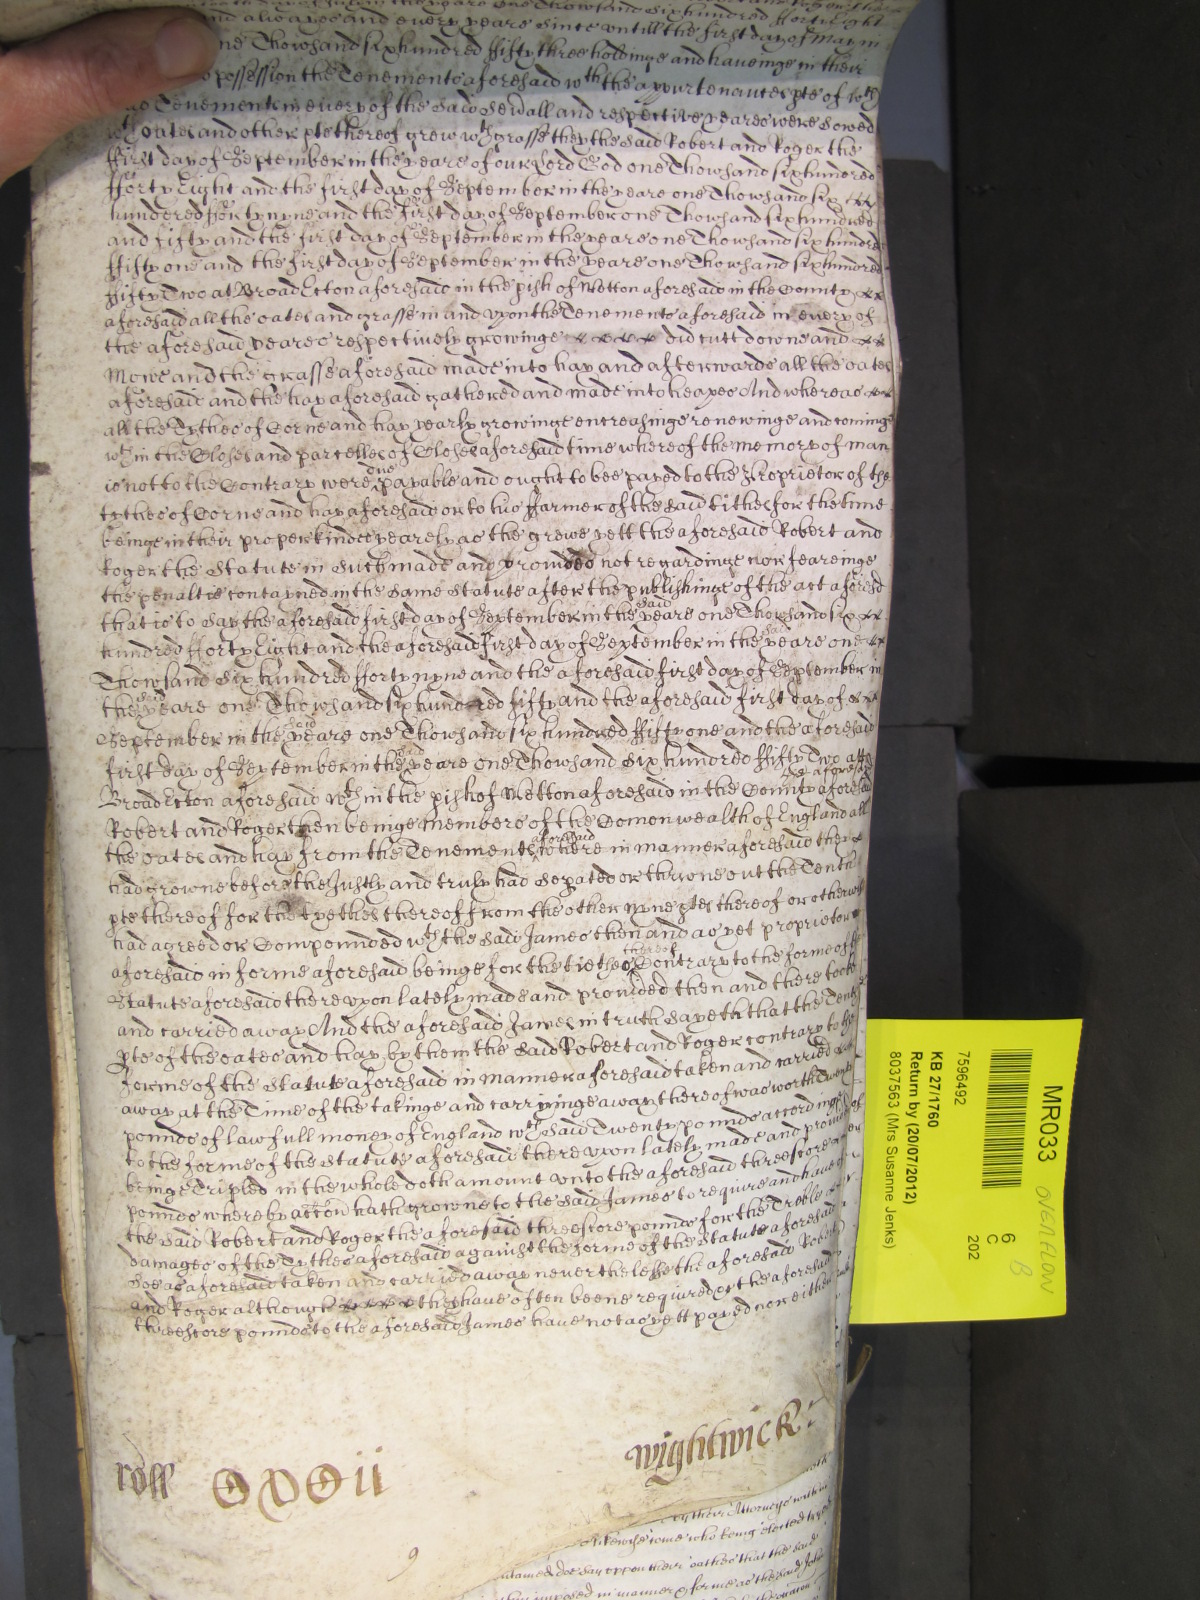 and alwayes and every yeare since untill the first day of May in
one Thowsand six hundred ffifty three holdinge and haveinge in their
possession the Tenements aforesaid wth the appurtenances pte of wch
Tenements in every of the said severall and respective yeares were sowed
wth oates and other pte thereof grew wth grasse they the said Robert and Roger the
ffirst day of September in the yeare of our Lord God one Thowsand six hundred
fforty Eight and the first day of September in the yeare one Thowsand six
hundered fforty nyne and the first day of September one Thowsand six hundred
and fifty and the first day of September in the yeare one Thowsand six hundred
ffifty one and the first day of September in the yeare one Thowsand six hundred
ffifty Two at Broad Ecton aforesaid in the pish of Netton aforesaid in the County
aforesaid all the oates and grasse in and vpon the Tenements aforesaid in every of
the aforesaid yeares respectively growinge did cutt downe and
Mowe and the grasse aforesaid made into hay and afterwards all the oates
aforesaid and the hay aforesaid gathered and made into heapes And whereas
all the Tythes of Corne and hay yearly growinge encreasinge renewinge and cominge
wth in the Closes and parcelles of Closes aforesaid time whereof the memory of man
is not to the Contrary were due payable and ought to bee payed to the Proprietor of the
tythes of Corne and hay aforesaid or to his ffarmer of the said tithes for the time
beinge in their proper kindes yearely as the grewe yett the aforesaid Robert and
Roger the Statute in such made and provided not regardinge nor feareinge
the penaltie contayned in the same Statute after the publishinge of the act aforesd
that is to say the aforesaid first day of September in the said yeare one Thowsand six
hundred fforty Eight and the aforesaid first day of September in the said yeare one
Thowsand Six hundred fforty nyne and the aforesaid first day of September in
the said yeare one Thowsand six hundred fifty and the aforesaid first day of
September in the said yeare one Thowsand six hundred ffifty one and the aforesaid
first day of September in the said yeare one Thowsand Six hundred ffifty Two att
Broad Ecton aforesaid wth in the pish of Netton aforesaid in the County aforesaid the aforesaid
Robert and Roger then beinge members of the Comonwealth of England all
the oates and hay from the Tenements aforesaid where in manner aforesaid they
had growne before the Justly and truly had Sepated or throwne out the Tenth
pte thereof for the tythes thereof from the other nyne ptes thereof or otherwise
had agreed or Compounded wth the said James then and as yet proprietor
aforesaid in forme aforesaid beinge for the tiethes thereof Contrary to the forme of the
Statute aforesaid there vpon lately made and provided then and there tooke
and carried away And the aforesaid James in truth Sayeth that the Tenth
pte of the oates and hay by them the said Robert and Roger contrary to the
forme of the Statute aforesaid in manner aforesaid taken and carried
away at the Time of the takinge and carryinge away thereof was worth Twenty
pounds of lawfull money of England wch said Twenty pounds accordinge
to the forme of the Statute aforesaid there vpon lately made and provided
beinge Tripled in the whole doth amount vnto the aforesaid threescore
pounds whereby accon hath growne to the said James to require and have of
the said Robert and Roger the aforesaid threescore pounds for the Treble
damages of the Tythes aforesaid against the forme of the Statute aforesaid
soe as aforesaid taken and carried away neverthelesse the aforesaid Robert
and Roger although they have often beene required the aforesaid
threescore pounds to the aforesaid James have not as yett payed nor either
Wightwick
9
by their Attorneys within
likewise come who being elected tryed
doe say uppon their oathes that the said
imposed in manner & forme as the said John
MR033 OVERFLOW
6 B
C
202
7596492
KB 27/1760
Return by (20/07/2012)
8037563 (Mrs Susanne Jenks)